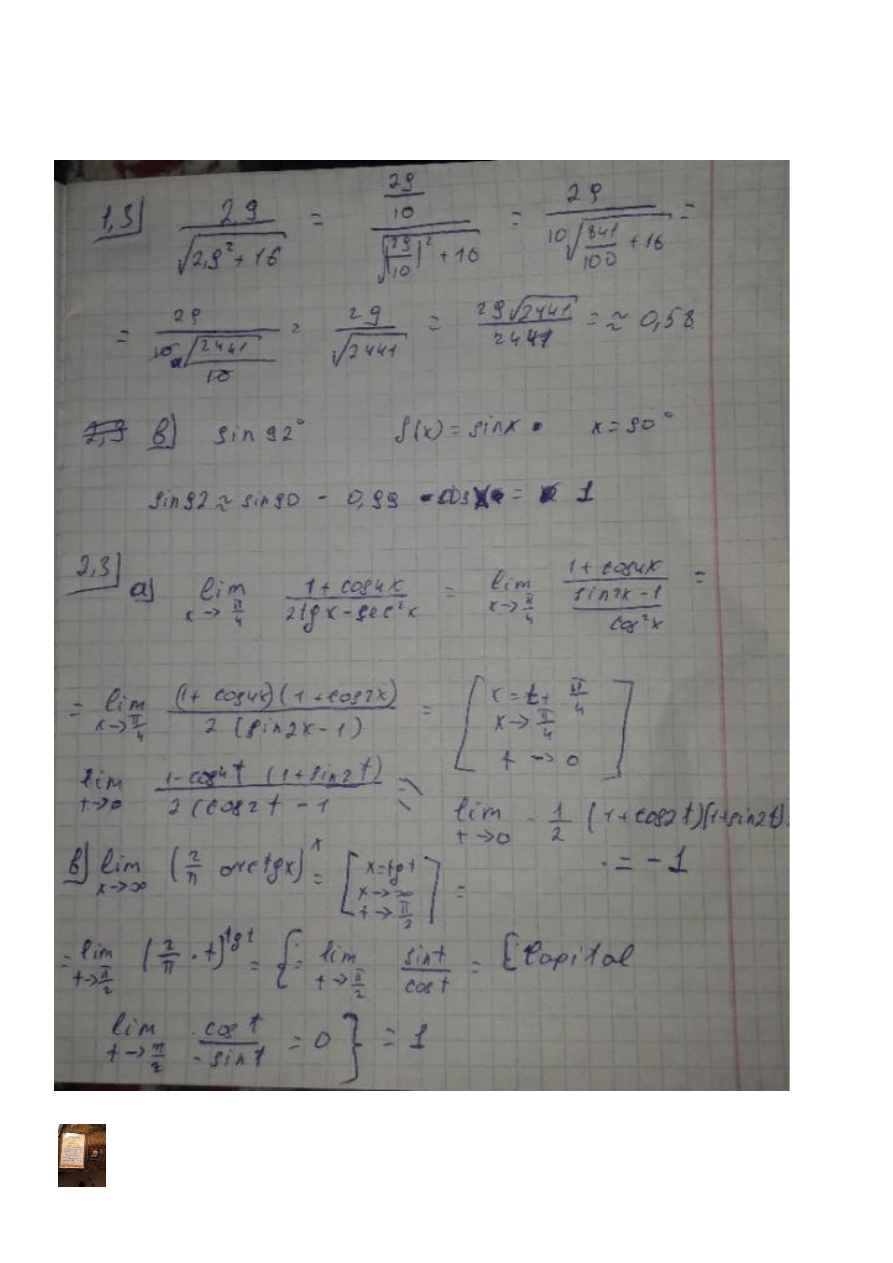 1,9] 2,9/√(2,9² + 16) = (29/10)/√((29/10)² + 16) = 29/(10√(841/100 + 16)) =
= 29/(10√2441/10) = 29/√2441 = 29√2441/2441 = ≈ 0,58
в) sin 92° f(x) = sin x x = 90°
sin 92 ≈ sin 90 - 0,99 = 1
2,3] a) lim x→π/4 (1 + cos4x)/(2tgx - sec²x) = lim x→π/4 (1 + cos4x)/((sin2x - 1)/cos²x) =
= lim x→π/4 (1 + cos4x)(1 + cos2x)/(2(sin2x - 1)) = [x = t + π/4 x→π/4 t→0]
lim t→0 (1 - cos4t (1 + sin2t))/(2(cos2t - 1) =
lim t→0 - 1/2 (1 + cos2t)(1 + sin2t).
. = - 1
в) lim x→∞ (2/π arctgx)^x = [x = tgt x→∞ t→π/2] =
= lim t→π/2 (2/π · t)^tgt = {= lim t→π/2 sint/cost = [Lopital
lim t→π/2 cost/-sint = 0} = 1